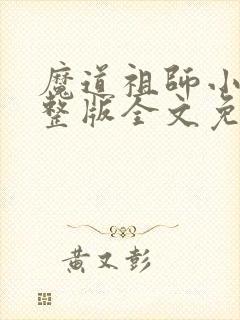 魔道祖師小
整版全文免
黄又彭